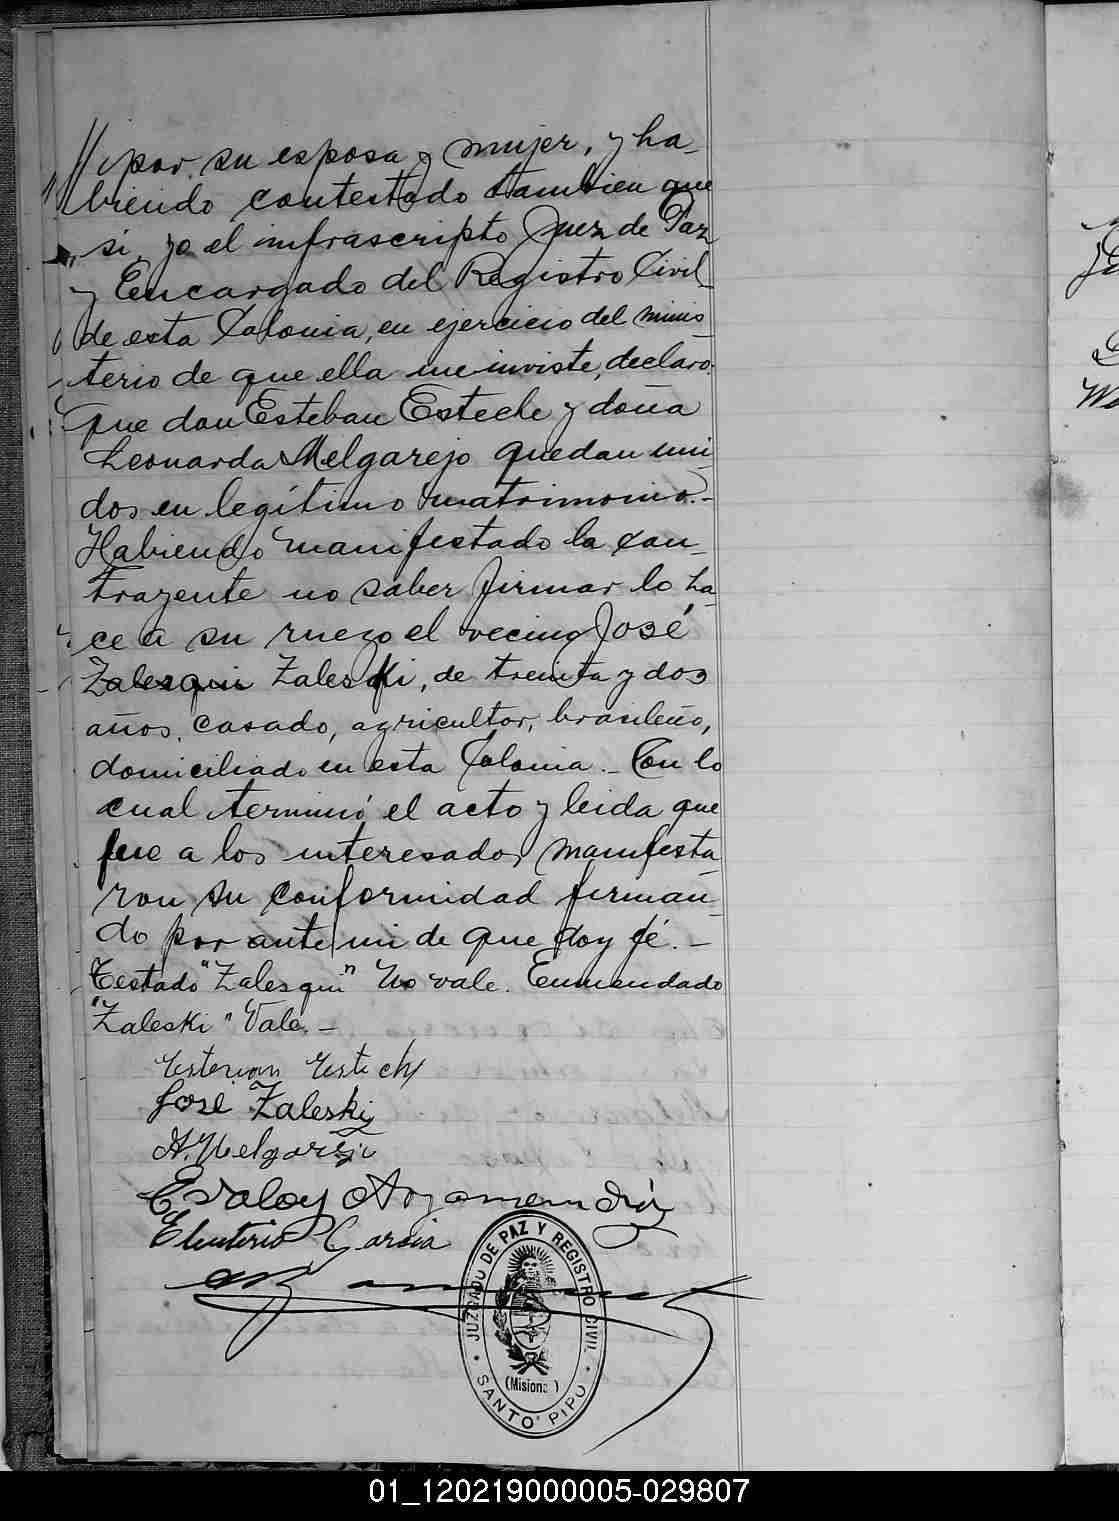 por su esposa y mujer, y ha-
biendo contestado tambien que
si, yo el infrascripto Juez de Paz
y Encargado del Registro Civil
de esta Colonia, en ejercicio del minis
terio de que ella me inviste, declaro:
que don Esteban Esteche y doña
Leonarda Melgarejo quedan uni-
dos en legítimo matrimonio.-
Habiendo manifestado la con-
trayente no saber firmar lo ha-
ce a su ruego el vecino José
Zalesqui Zaleski, de treinta y dos
años, casado, agricultor, brasileño,
domiciliado en esta Colonia.- Con lo
cual terminó el acto y leida que
fue a los interesados manifesta
ron su conformidad firman-
do por ante mi de que doy fé.-
Testado "Zalesqui" No vale. Enmendado
"Zaleski" Vale.-
Estevan Estech
José Zaleski
A. Melgarejo
Evaloy Argamendia
Eleuterio Garcia
JUZGADO DE PAZ Y REGISTRO CIVIL
(Misiones)
SANTO PIPO
01_120219000005-029807